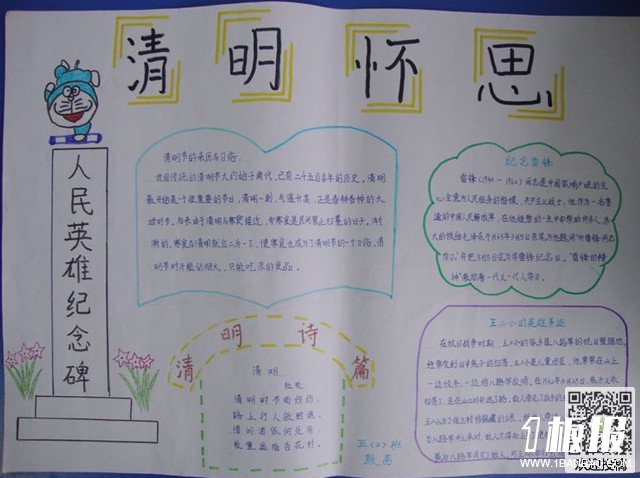 清明怀思
人民英雄纪念碑
清明节的来历与习俗
我国传统的清明节大约始于周代，已有二千五百多年的历史。清明
最开始是个很重要的节日，清明一到，气温升高，正是春耕春种的大
动时节，后来由于清明与寒食接近，而寒食是民间禁火扫墓的日子，渐
渐的，寒食与清明就合二为一了，使寒食也成为了清明节的一个习俗，清
明节时不能动烟火，只能吃凉的食品。
清明诗篇
清明
杜牧
清明时节雨纷纷，
路上行人欲断魂，
借问酒家何处有，
牧童遥指杏花村。
五（2）班
纪念雷锋
雷锋（1940-1962）同志是中国家喻户晓的全
心全意为人民服务的楷模，共产主义战士；他作为一名普
通的中国人民解放军，在他短暂的一生中却帮助
大的领袖毛泽东于63年3月5日亲笔为他题词“向雷锋同志
学习”，并把3月5日定为学雷锋纪念日。“雷锋的精
神”激励着一代又一代人学习。
王二小的英雄事迹
在抗日战争时期，王二小的家乡是八路军的抗日根据地，
经常受到日本鬼子的扫荡，王二小是儿童团员，他常常在山上
一边放牛，一边给八路军放哨，
1板报
WWW.1BANBAO.COM
欢迎投稿